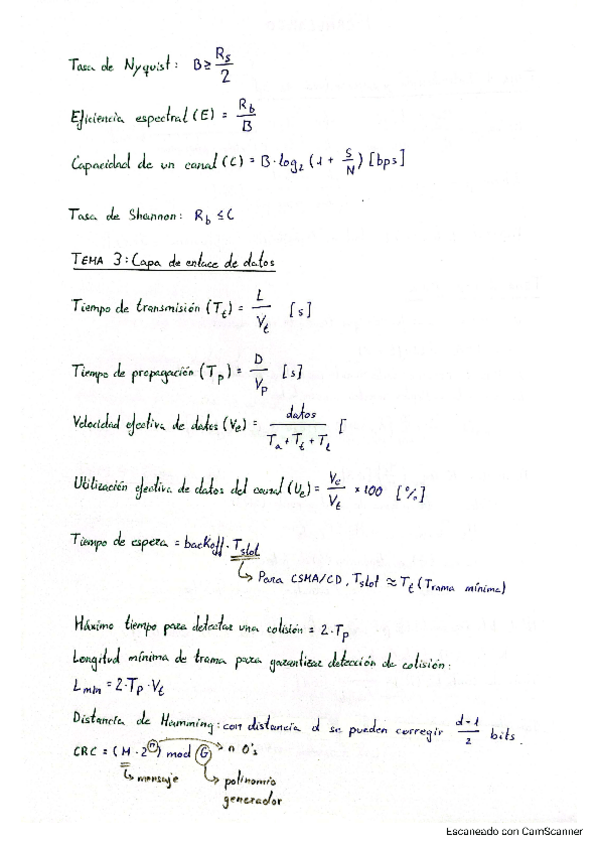 Tasa de Nyquist: B ≥ Rs/2
Eficiencia espectral (E) = Rb/B
Capacidad de un canal (C) = B·log₂ (1 + S/N) [bps]
Tasa de Shannon: Rb ≤ C
TEMA 3: Capa de enlace de datos
Tiempo de transmisión (Tt) = L/Vt [s]
Tiempo de propagación (Tp) = D/Vp [s]
Velocidad efectiva de datos (Ve) = datos/(Ta + Tt + Tt) [
Utilización efectiva de datos del canal (Ue) = Ve/Vt × 100 [%]
Tiempo de espera = backoff · Tslot
Para CSMA/CD, Tslot ≈ Tt (Trama mínima)
Máximo tiempo para detectar una colisión = 2·Tp
Longitud mínima de trama para garantizar detección de colisión:
Lmin = 2·Tp·Vt
Distancia de Hamming: con distancia d se pueden corregir (d-1)/2 bits.
CRC = (M · 2ⁿ) mod G n 0's
mensaje polinomio
generador
Escaneado con CamScanner